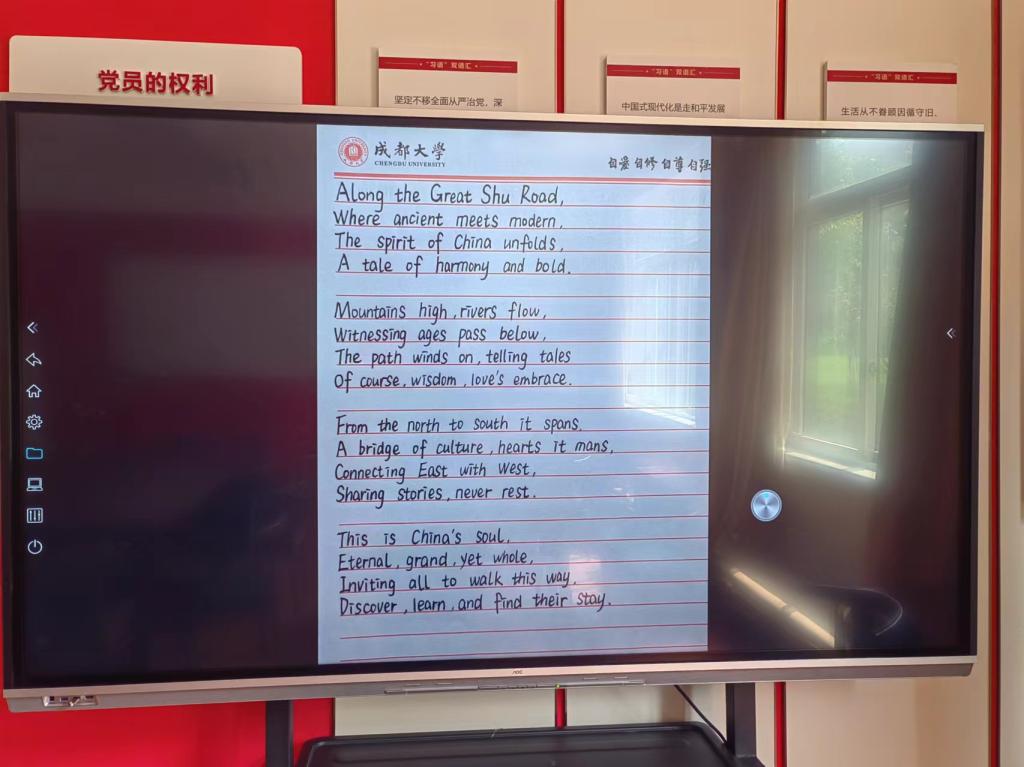 党员的权利
“习语”双语汇
坚定不移全面从严治党，深
“习语”双语汇
中国式现代化是走和平发展
“习语”双语汇
生活从不眷顾因循守旧、
成都大学
CHENGDU UNIVERSITY
自爱 自修 自尊 自强
Along the Great Shu Road,
Where ancient meets modern,
The spirit of China unfolds,
A tale of harmony and bold.
Mountains high, rivers flow,
Witnessing ages pass below,
The path winds on, telling tales
Of course, wisdom, love's embrace.
From the north to south it spans,
A bridge of culture, hearts it mans,
Connecting East with West,
Sharing stories, never rest.
This is China's soul,
Eternal, grand, yet whole,
Inviting all to walk this way,
Discover, learn, and find their stay.
AOC